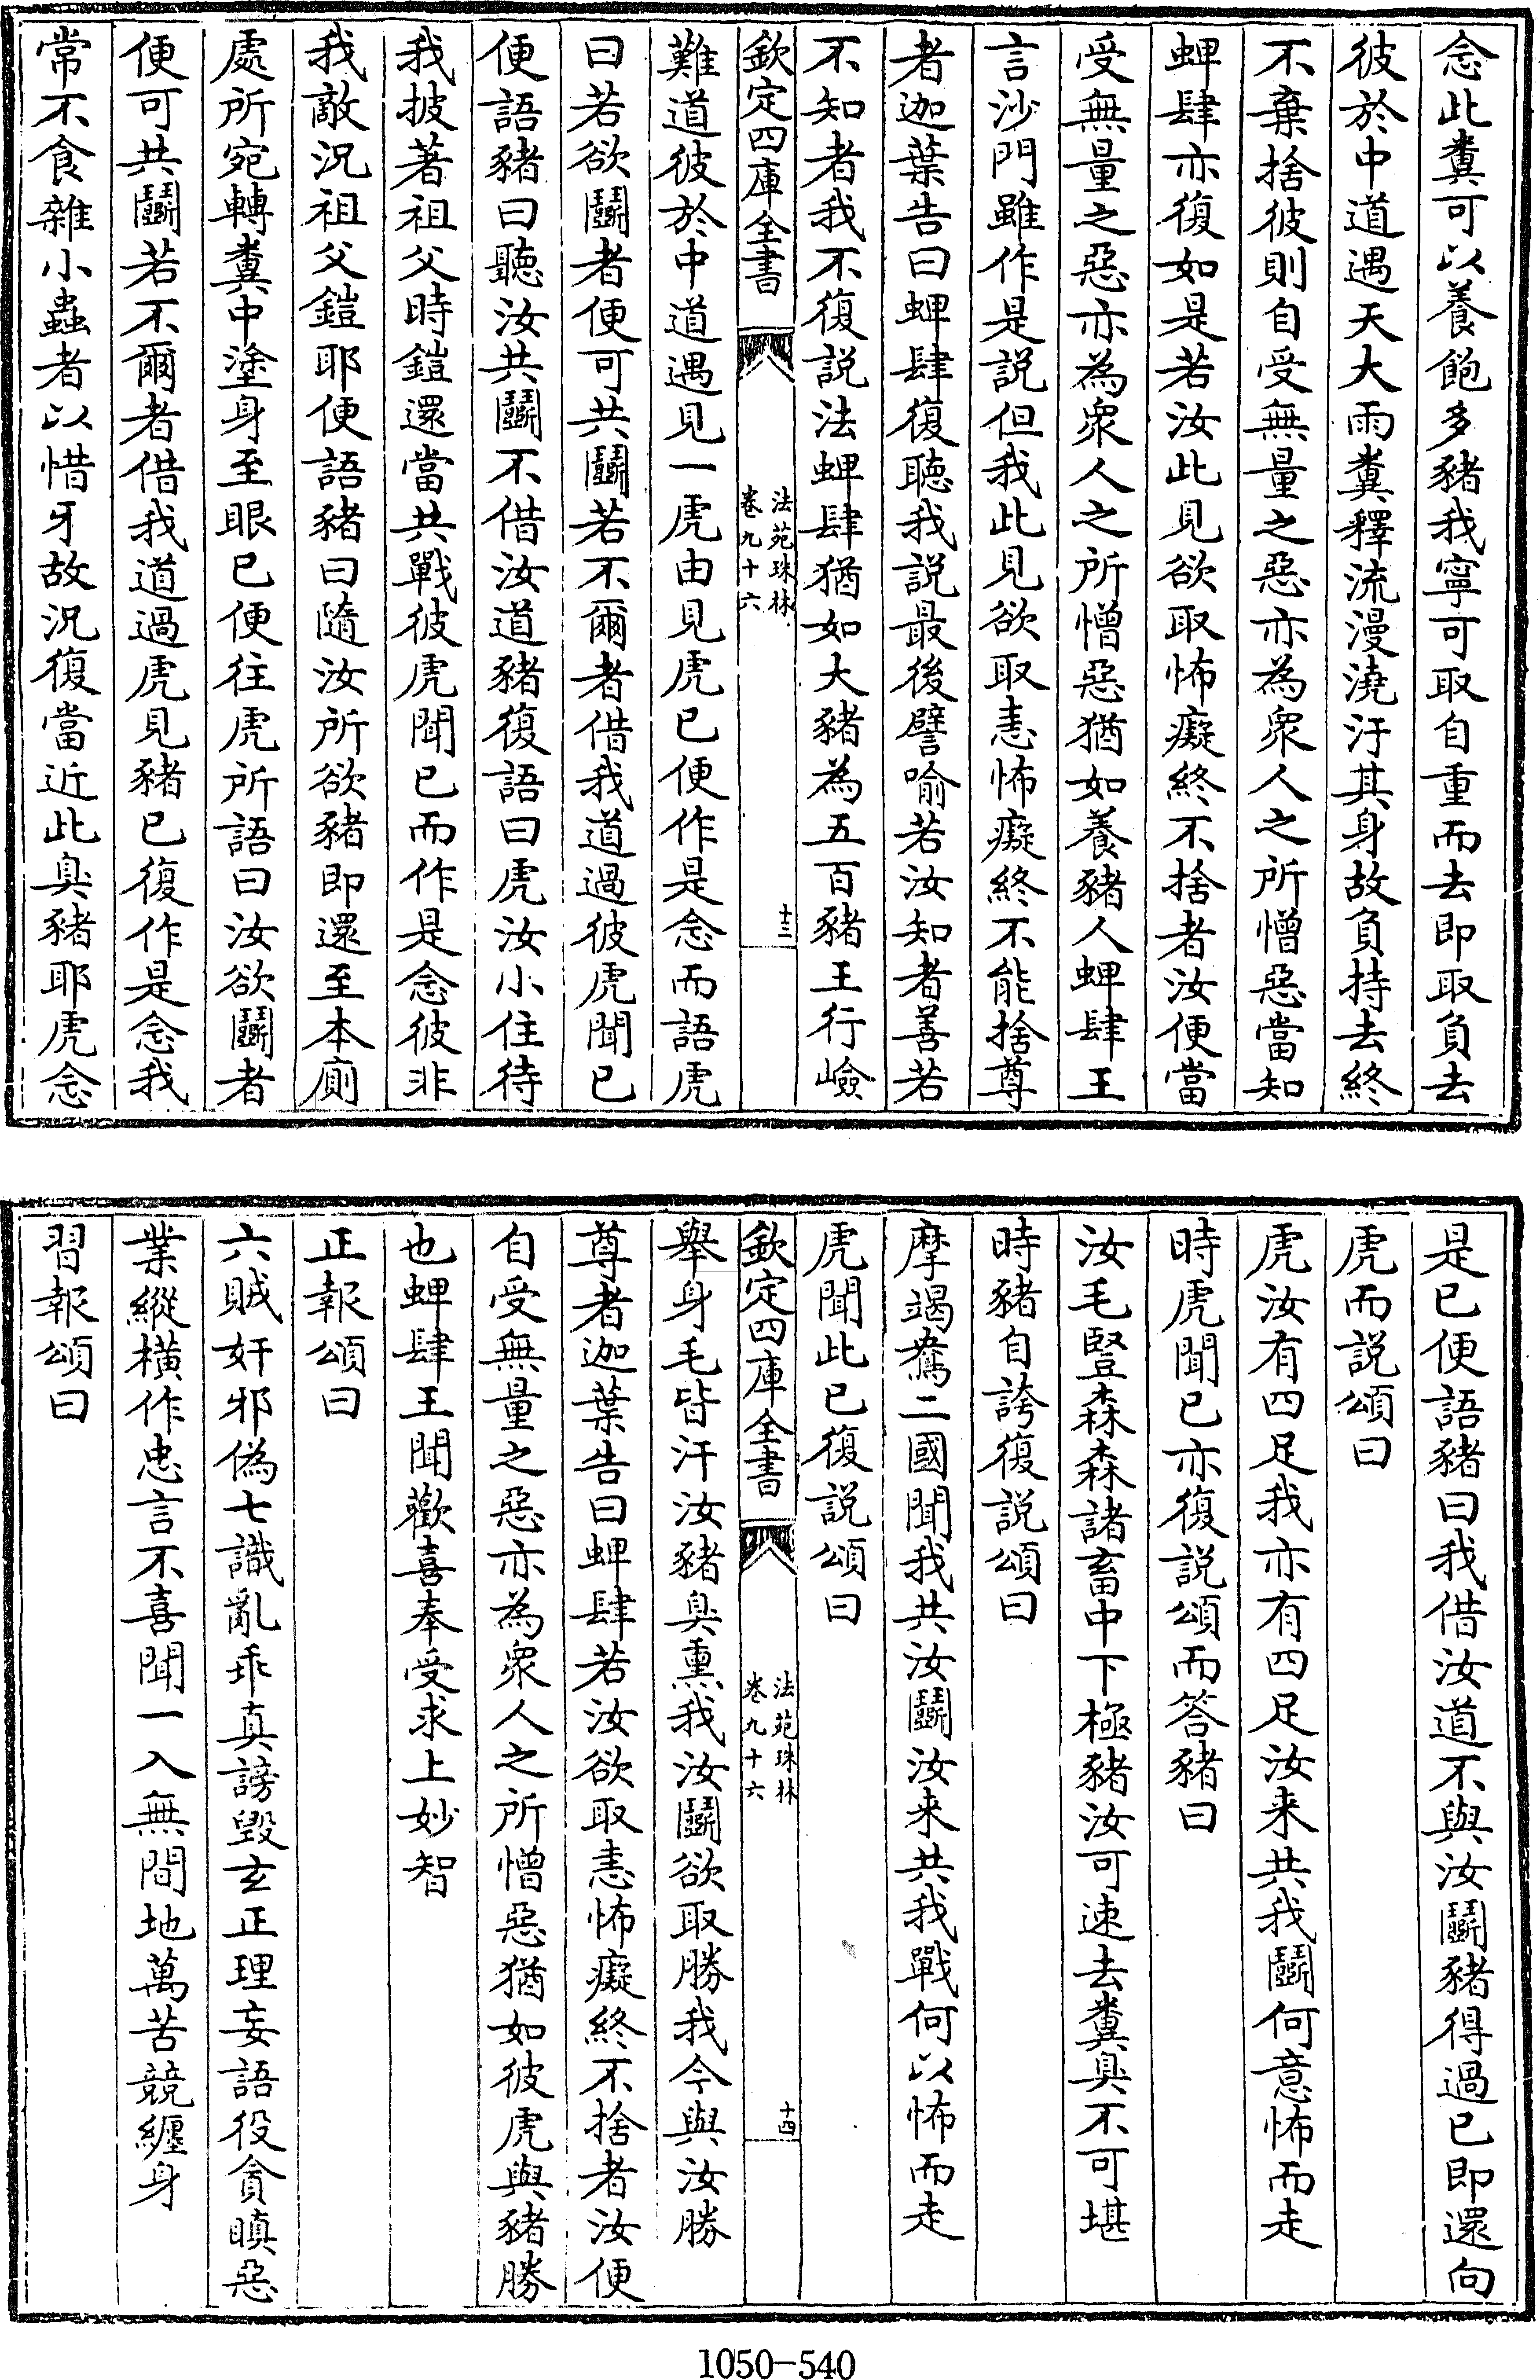 念此糞可以養飽多豬我寧可取自重而去即取負去
彼於中道遇天大雨糞釋流漫澆汙其身故負持去終
不棄捨彼則自受無量之惡亦為衆人之所憎惡當知
蜱肆亦復如是若汝此見欲取怖癡終不捨者汝便當
受無量之惡亦為衆人之所憎惡猶如養豬人蜱肆王
言沙門雖作是説但我此見欲取恚怖癡終不能捨尊
者迦葉告曰蜱肆復聽我説最後譬喻若汝知者善若
不知者我不復説法蜱肆猶如大豬為五百豬王行嶮
欽定四庫全書
法苑珠林
卷九十六
十三
難道彼於中道遇見一虎由見虎已便作是念而語虎
曰若欲鬭者便可共鬭若不爾者借我道過彼虎聞已
便語豬曰聽汝共鬭不借汝道豬復語曰虎汝小住待
我披著祖父時鎧還當共戰彼虎聞已而作是念彼非
我敵況祖父鎧耶便語豬曰隨汝所欲豬即還至本廁
處所宛轉糞中塗身至眼已便往虎所語曰汝欲鬭者
便可共鬭若不爾者借我道過虎見豬已復作是念我
常不食雜小蟲者以惜牙故況復當近此臭豬耶虎念
是已便語豬曰我借汝道不與汝鬭豬得過已即還向
虎而説頌曰
虎汝有四足我亦有四足汝来共我鬭何意怖而走
時虎聞已亦復説頌而答豬曰
汝毛豎森森諸畜中下極豬汝可速去糞臭不可堪
時豬自誇復説頌曰
摩竭鴦二國聞我共汝鬭汝来共我戰何以怖而走
虎聞此已復説頌曰
欽定四庫全書
法苑珠林
卷九十六
十四
舉身毛皆汗汝豬臭熏我汝鬭欲取勝我今與汝勝
尊者迦葉告曰蜱肆若汝欲取恚怖癡終不捨者汝便
自受無量之惡亦為衆人之所憎惡猶如彼虎與豬勝
也蜱肆王聞歡喜奉受求上妙智
正報頌曰
六賊奸邪偽七識亂乖真謗毀玄正理妄語役貪瞋惡
業縱横作忠言不喜聞一入無間地萬苦競纏身
習報頌曰
1050-540